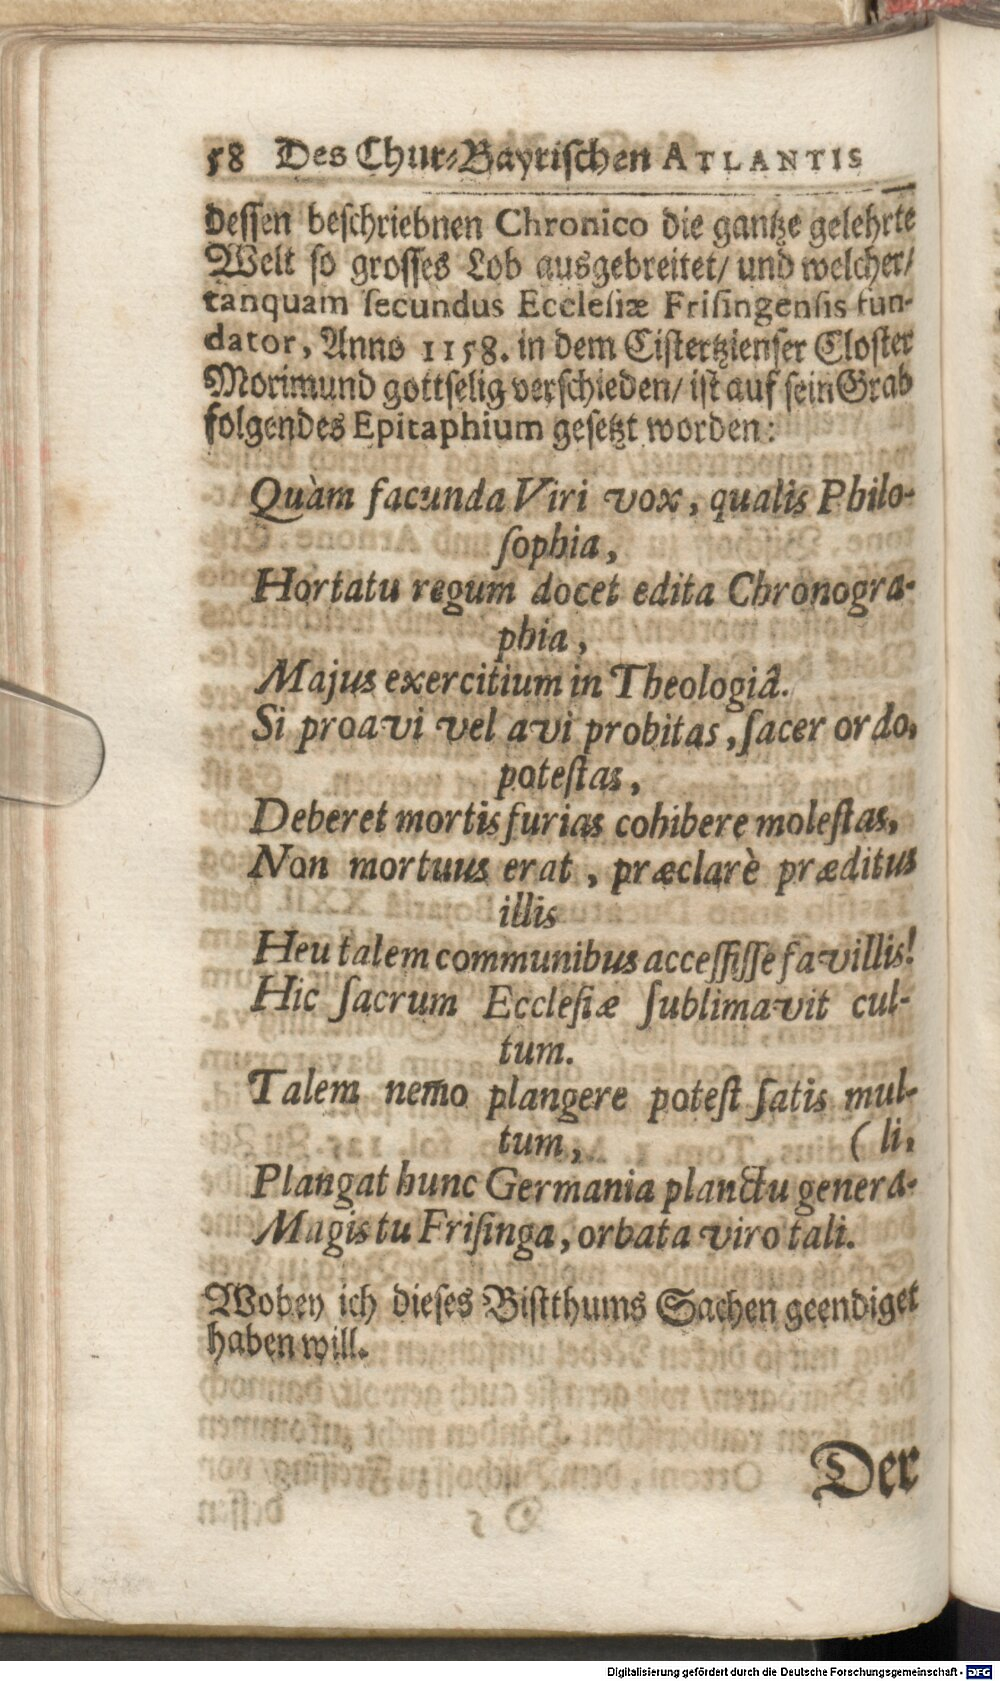 58 Des Chur-Bayrischen ATLANTIS
dessen beschriebnen Chronico die gantze gelehrte
Welt so grosses Lob ausgebreitet/ und welcher/
tanquam secundus Ecclesiæ Frisingensis fun-
dator, Anno 1158. in dem Cistertzienser Closter
Morimund gottselig verschieden/ ist auf sein Grab
folgendes Epitaphium gesetzt worden:
Quàm facunda Viri vox, qualis Philo-
sophia,
Hortatu regum docet edita Chronogra-
phia,
Majus exercitium in Theologiâ.
Si proavi vel avi probitas, sacer ordo,
potestas,
Deberet mortis furias cohibere molestas,
Non mortuus erat, præclarè præditus
illis
Heu talem communibus accessisse favillis!
Hic sacrum Ecclesiæ sublimavit cul-
tum.
Talem nemo plangere potest satis mul-
tum, ( li,
Plangat hunc Germania planctu genera-
Magis tu Frisinga, orbata viro tali.
Wobey ich dieses Bistthums Sachen geendiget
haben will.
Der
Digitalisierung gefördert durch die Deutsche Forschungsgemeinschaft - DFG